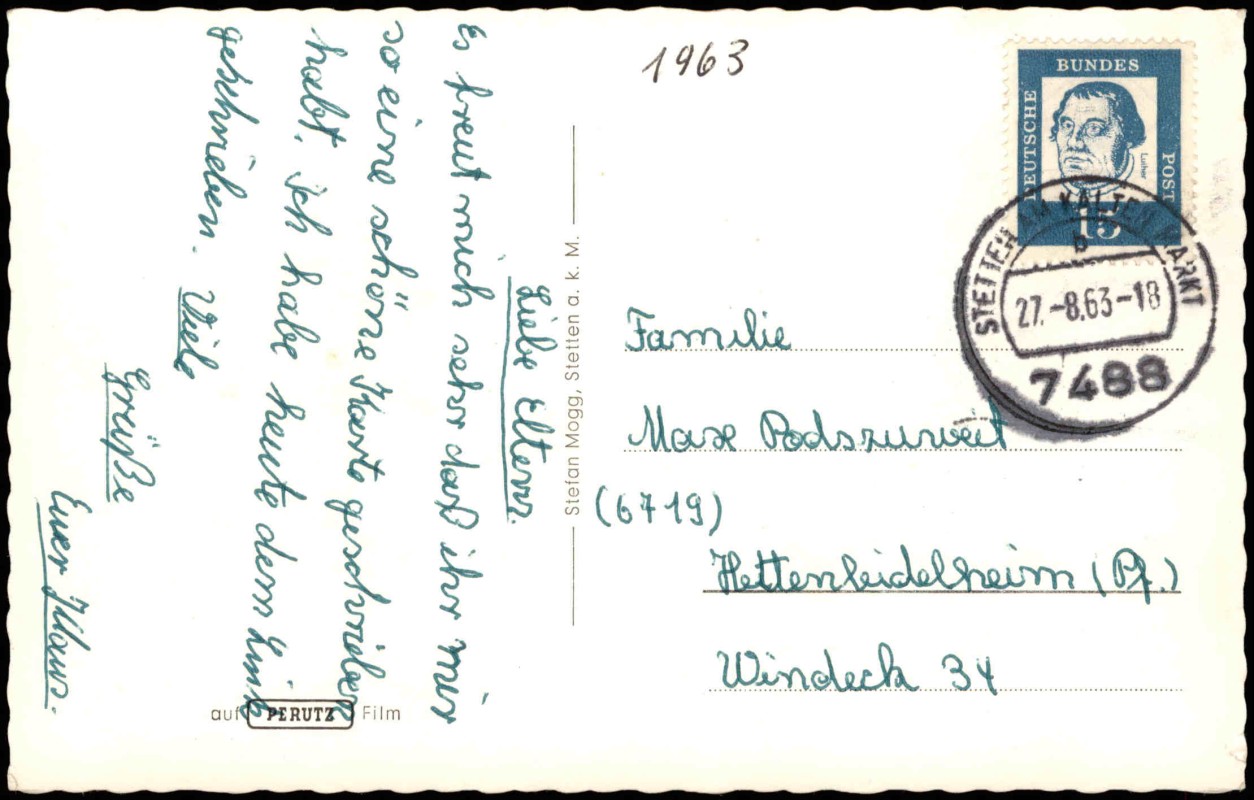 1963
DEUTSCHE
BUNDES
POST
Luther
15
STETTEN AM KALTEN MARKT
b
27.-8.63-18
7488
Liebe Eltern.
Es freut mich sehr daß ihr mir
so eine schöne Karte geschrieben
habt. ich habe heute dem
geschrieben. Viele
Grüße
Euer Klaus.
Stefan Mogg, Stetten a. k. M.
auf PERUTZ Film
Familie
Max Podszuweit
(6719)
Hettenleidelheim (Pf.)
Windeck 34